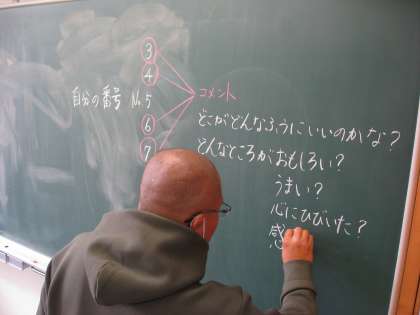 ③
④
自分の番号 No.5
⑥
⑦
コメント
どこがどんなふうにいいのかな？
どんなところがおもしろい？
うまい？
心にひびいた？
感